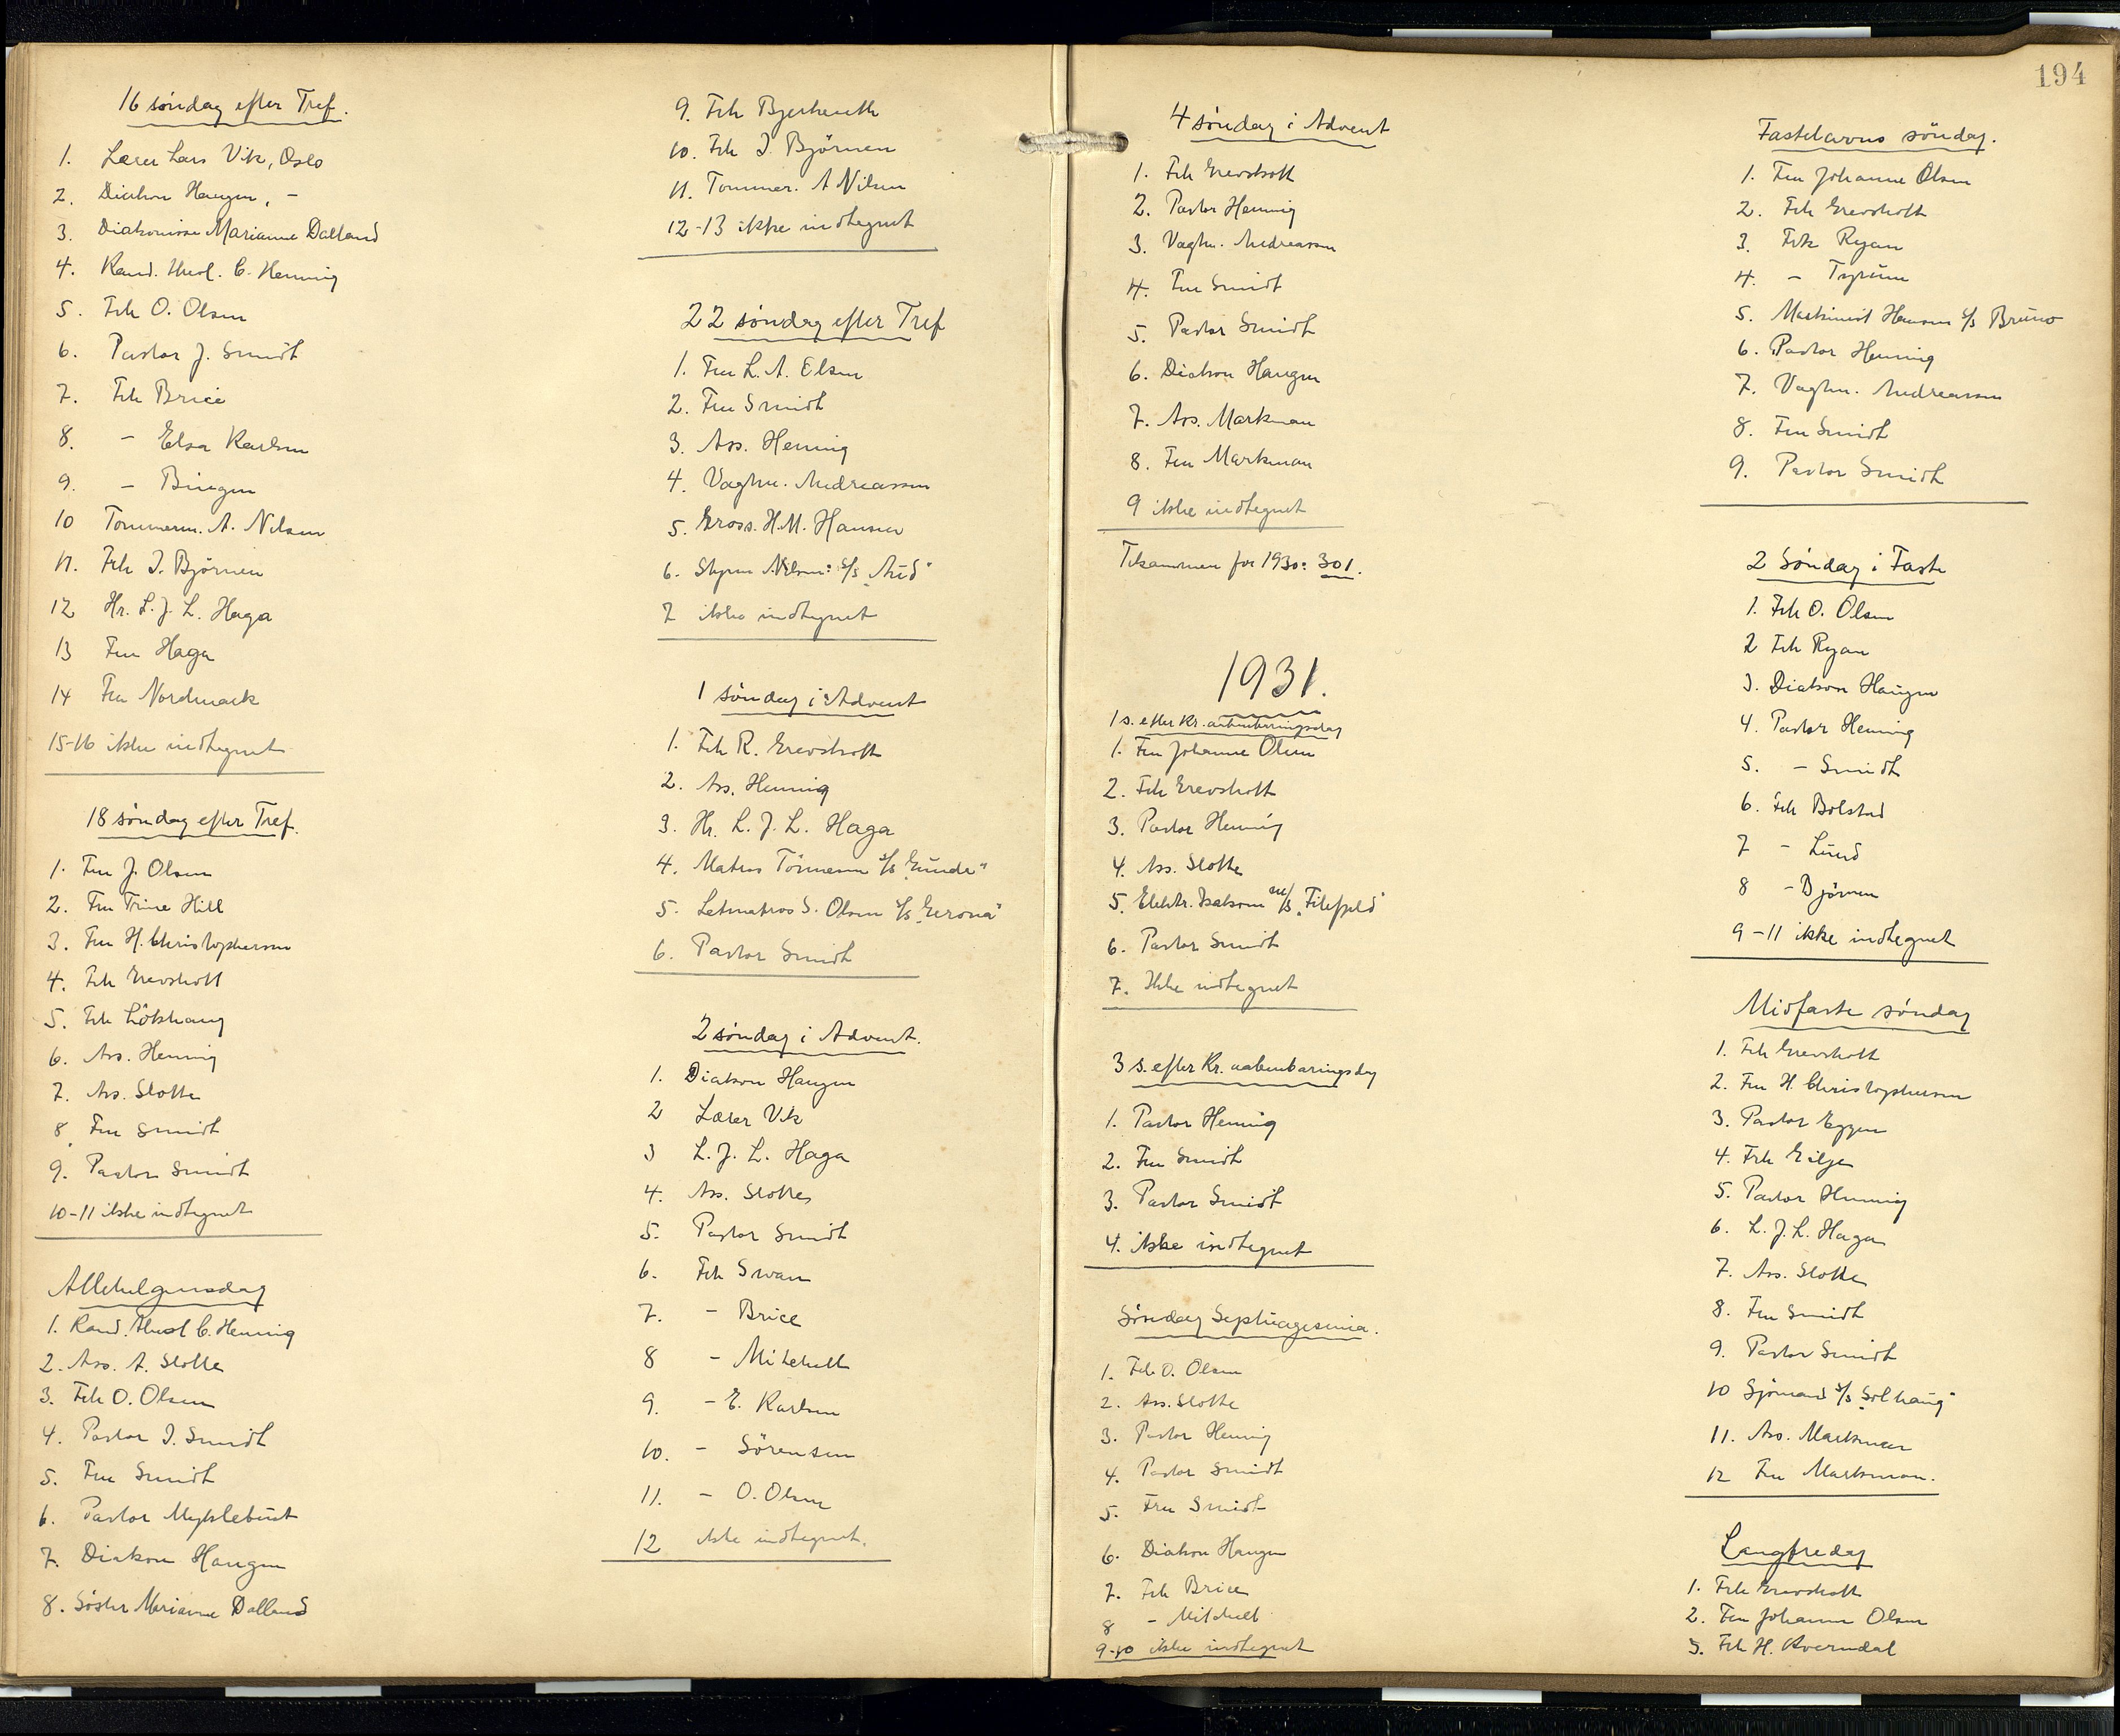 16 søndag efter Tref.
1. Lærer Lars Vik, Oslo
2. Diakon Haugen, -
3. Diakonisse Marianne Dalland
4. Kand. theol. C. Hennig
5. Frk O. Olsen
6. Pastor J. Smidt
7. Frk Brice
8. - Elsa Karlsen
9. - Bingen
10 Tømmerm. A. Nilsen
11. Frk I. Bjørnen
12 Hr. L. J. L. Haga
13 Fru Haga
14 Fru Nordmark
15-16 ikke indtegnet
18 søndag efter Tref.
1. Fru J. Olsen
2. Fru Trine Hill
3. Fru H. Christophersen
4. Frk Grevskott
5. Frk Løkhaug
6. Ass. Hennig
7. Ass. Slotte
8. Fru Smidt
9. Pastor Smidt
10-11 ikke indtegnet
Allehelgensdag
1. Kand. theol C. Hennig
2. Ass. A. Slotte
3. Frk O. Olsen
4. Pastor J. Smidt
5. Fru Smidt
6. Pastor Myklebust
7. Diakon Haugen
8. Søster Marianne Dalland
9. Frk Bjerknetth
10. Frk I. Bjørnen
11. Tømmer. A Nilsen
12-13 ikke indtegnet
22 søndag efter Tref
1. Fru L. A. Elsen
2. Fru Smidt
3. Ass. Hennig
4. Vagtm. Andreassen
5. Gross. H.M. Hansen
6. Styrm Nilsen: S/S "Aud"
7 ikke indtegnet
1 søndag i Advent
1. Frk R. Grevskott
2. Ass. Hennig
3. Hr. L. J. L. Haga
4. Matros Tönnesen S/S "Gunda"
5. Letmatros S. Olsen S/S "Gerona"
6. Pastor Smidt
2 søndag i Advent.
1. Diakon Haugen
2 Lærer Vik
3 L. J. L. Haga
4. Ass. Slotte
5. Pastor Smidt
6. Frk Swan
7. - Brice
8 - Mitchell
9. - E. Karlsen
10. - Sörensen
11. - O. Olsen
12 ikke indtegnet.
194
4 søndag i Advent
1. Frk Grevskott
2. Pastor Hennig
3. Vagtm. Andreassen
4. Fru Smidt
5. Pastor Smidt
6. Diakon Haugen
7. Ass. Markman
8. Fru Markman
9 ikke indtegnet
Tilsammen for 1930: 301.
1931.
1 s. efter Kr. aabenbaringsdag
1. Fru Johanne Olsen
2. Frk Grevskott
3. Pastor Hennig
4. Ass. Slotte
5. Elektr. Isaksen m/s "Filefjeld"
6. Pastor Smidt
7. Ikke indtegnet
3 s. efter Kr. aabenbaringsdag
1. Pastor Hennig
2. Fru Smidt
3. Pastor Smidt
4. ikke indtegnet
Søndag Septuagesima.
1. Frk O. Olsen
2. Ass. Slotte
3. Pastor Hennig
4. Pastor Smidt
5. Fru Smidt
6. Diakon Haugen
7. Frk Brice
8 - Mitchell
9-10 ikke indtegnet
Fastelavns söndag.
1. Fru Johanne Olsen
2. Frk Grevskott
3. Frk Ryan
4. -
5. Maskinist Hansen S/S Bruno
6. Pastor Hennig
7. Vagtm. Andreassen
8. Fru Smidt
9. Pastor Smidt
2 Søndag i Faste
1. Frk O. Olsen
2 Frk Ryan
3. Diakon Haugen
4. Pastor Hennig
5. - Smidt
6. Frk Bolstad
7 - Lund
8 - Bjørnen
9-11 ikke indtegnet
Midfaste søndag
1. Frk Grevskott
2. Fru H. Christophersen
3. Pastor Eggen
4. Frk Gilje
5. Pastor Hennig
6. L. J. L. Haga
7. Ass. Slotte
8. Fru Smidt
9. Pastor Smidt
10 Sjömand S/S "Solhaug"
11. Ass. Markman
12 Fru Markman.
Langfredag
1. Frk Grevskott
2. Fru Johanne Olsen
3. Frk H. Kverndal